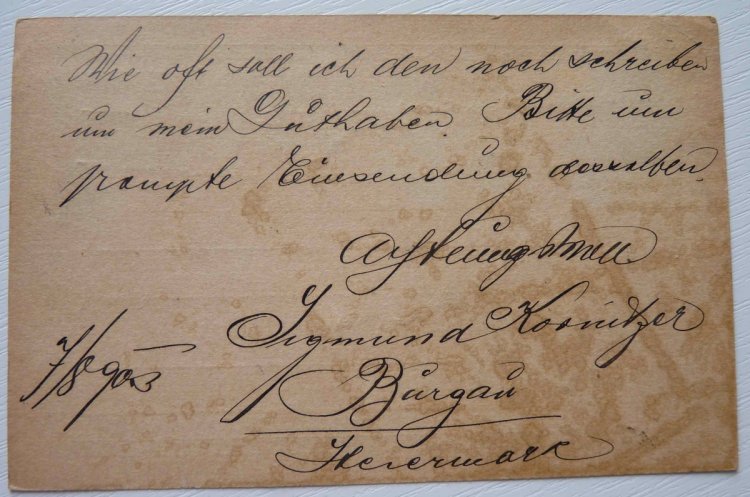 Wie oft soll ich den noch schreiben
um mein Guthaben. Bitte um
prompte Einsendung desselben.
Achtungsvoll
Sigmund Kornitzer
Burgau
Steiermark
7/8 903